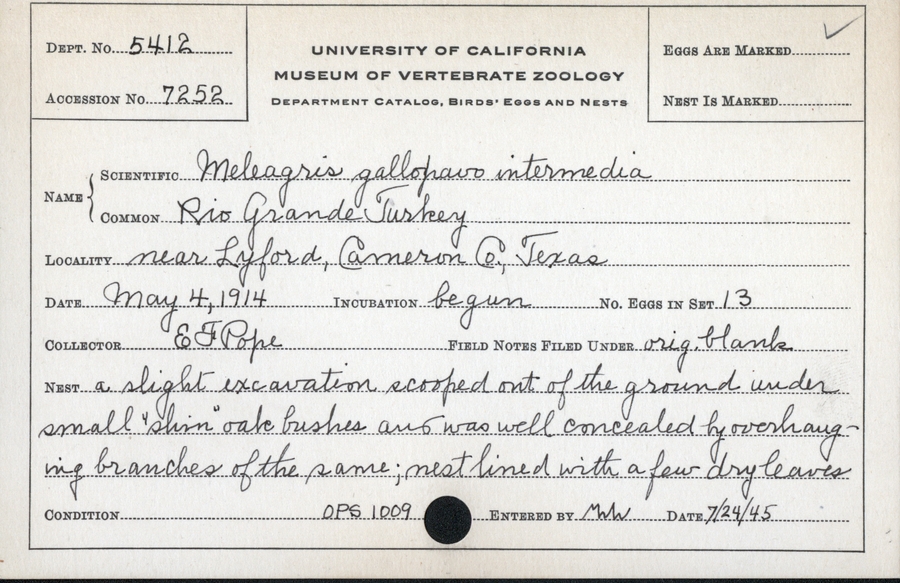 DEPT. NO. 5412
ACCESSION NO. 7252
UNIVERSITY OF CALIFORNIA
MUSEUM OF VERTEBRATE ZOOLOGY
DEPARTMENT CATALOG, BIRDS' EGGS AND NESTS
EGGS ARE MARKED ✓
NEST IS MARKED
NAME { SCIENTIFIC Meleagris gallopavo intermedia
COMMON Rio Grande Turkey
LOCALITY near Lyford, Cameron Co., Texas
DATE May 4, 1914 INCUBATION begun NO. EGGS IN SET 13
COLLECTOR E F Pope FIELD NOTES FILED UNDER orig. blank
NEST a slight excavation scooped out of the ground under
small "shin" oak bushes and was well concealed by overhang-
ing branches of the same; nest lined with a few dry leaves
CONDITION OPS 1009 ENTERED BY DATE 7/24/45